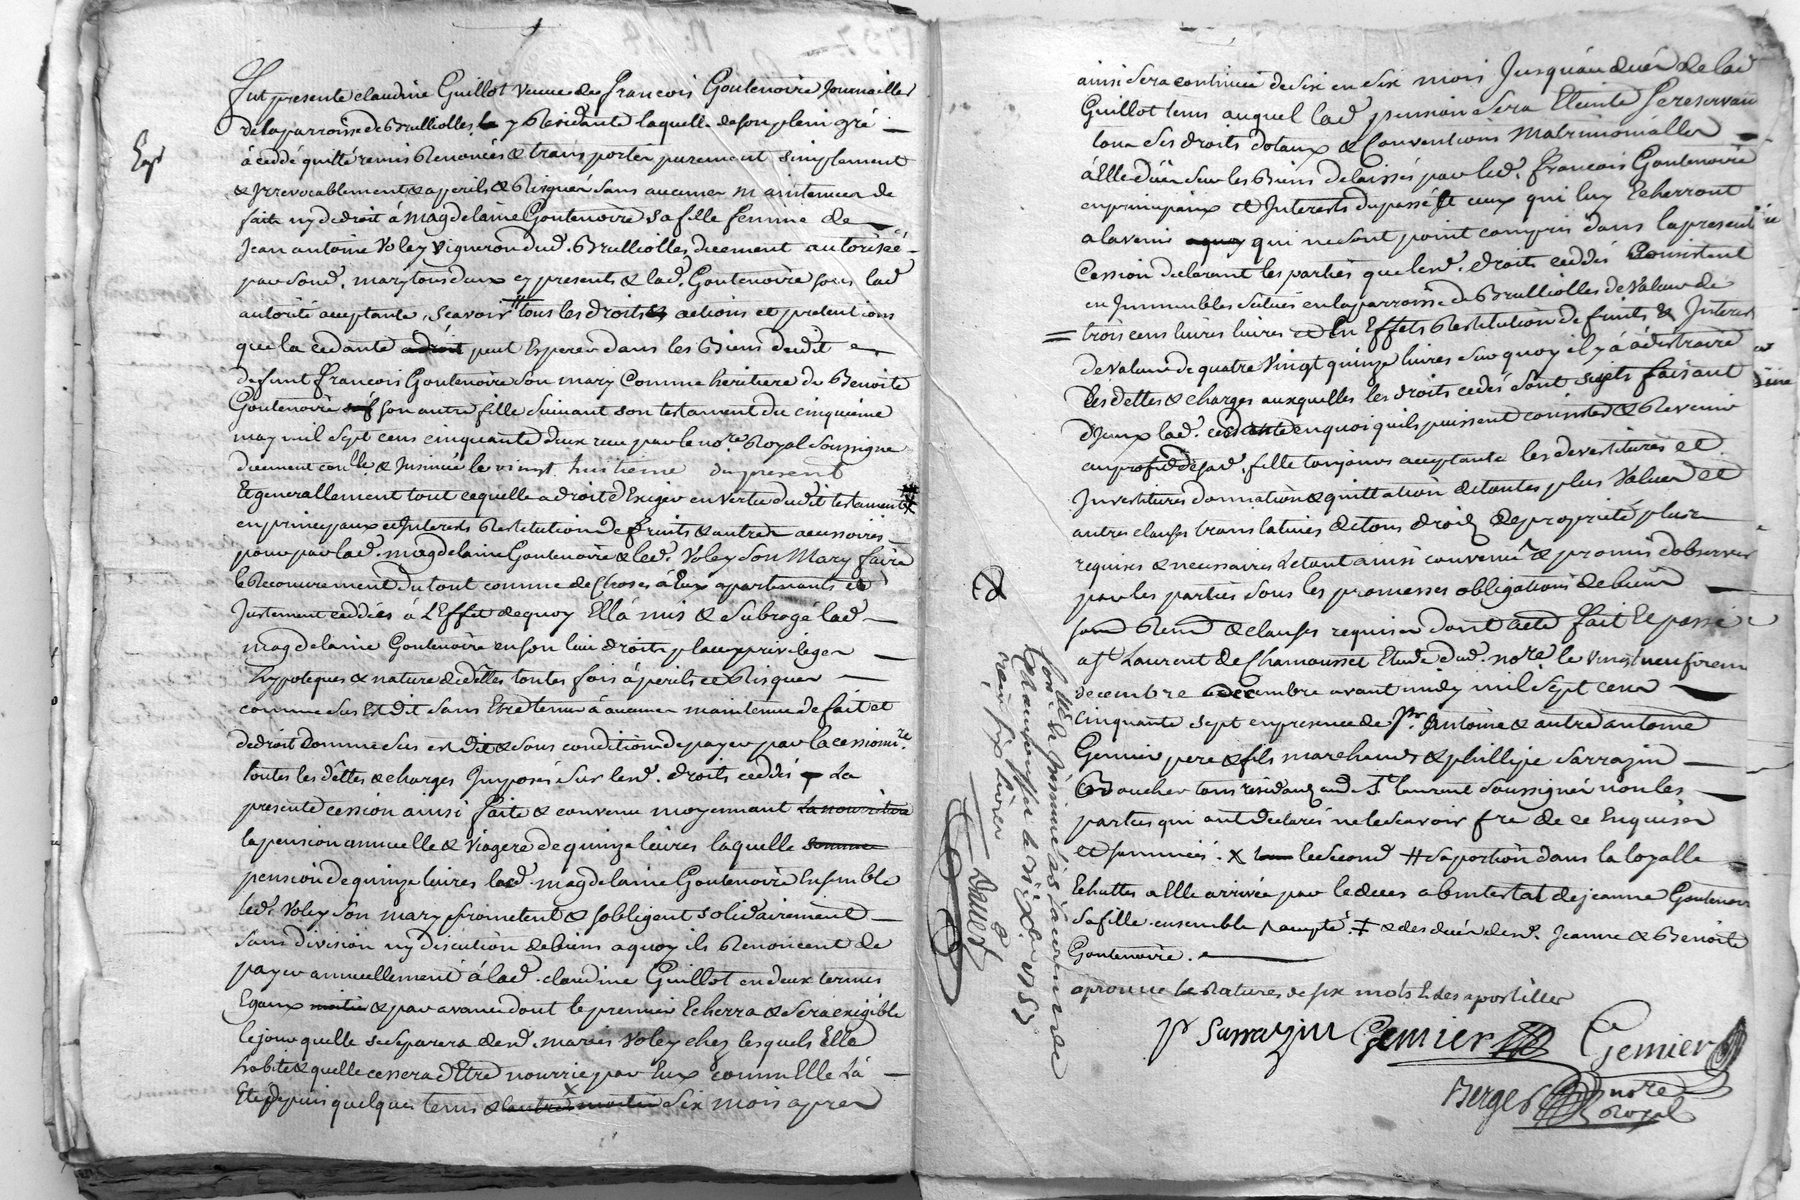 Fut presente claudine Guillot veuve de francois Goutenoire Journallier
de la parroisse de Brulliolles y Residante laquelle de son plein gré
Exp
à ceddé quitté remis Renoncés & transporter purement simplament
& Irrevocablement & a perils & Risques sans aucunes maintenues de
fait ny de droit á magdelaine Goutenoire sa fille femme de
Jean antoine Voley vigneron dud. Brulliolles, duement autorisée
par sond. mary tous deux cy presents & lad. Goutenoire sous lad
autorité acceptante, scavoir # tous les droits actions et pretentions
que la cedante a droit peut Esperer dans les Biens dudit
defunt francois Goutenoire son mary comme heritiere de Benoite
Goutenoire son autre fille suivant son testament du cinquieme
may mil sept cens cinquante deux recu par le no.re Royal soussigne
duement con.llé & Insinué le vingt huitieme du present
Et generallement tout ce quelle a droit d'Exiger en vertu dudit testament
en principaux et Interests Restitution de fruits & autres accessoires
pour par lad. magdelaine Goutenoire & led. Voley son mary faire
le Recouvrement du tout comme de Choses á Eux apartenants et
Justement ceddées á L'Effet de quoy Ella mis & subrogé lad
magdelaine Goutenoire en son lieu droits place privileges
hypoteques & nature dicelles toutes fois á perils et Risques
comme dus Est dit sans Etre tenue á aucunes maintenue de fait et
de droit comme dus est dit & sous condition de payer par la cessionn.re
toutes les dettes & charges Imposés sur lesd. droits ceddés La
presente cession ainsi faite & convenue moyennant la nourriture
la pension annuelle & viagere de quinze livres laquelle somme
pension de quinze livres lad. magdelaine Goutenoire Ensemble
led. Voley son mary promettent & sobligent solidairement
sans division ny discution de biens a quoy ils Renoncent de
payer annuellement á lad. claudine Guillot en deux termes
Egaux moitié & par avance dont le premier Echerra & sera exigible
le jour quelle se separera desd. mariés Voley chez lesquels Elle
habite & quelle cessera d'Etre nourrie par Eux comme Elle La
Eté depuis quelques tems & lautre moitié x six mois apres
ainsi sera continué de six en six mois Jusqu'au decés de lad
Guillot tems auquel lad pension sera Eteinte se reservant
tous ses droits dotaux & Conventions Matrimonialles
á Elle dües sur les Biens delaissés par led. francois Goutenoire
en principaux et Interests du passé & ceux qui luy Echerront
a lavenir qui ne sont point compris dans la presente
Cession declarant les parties que lesd. droits ceddés Consistent
en Immeubles situés en la parroisse de Brulliolles de valeur de
trois cens livres livres et En Effets Restitution de fruits & Interest
de valeur de quatre vingt quinze livres sur quoy il y a á distraire
Les dettes & charges auxquelles les droits cedés sont sujets faisant
d'Iceux lad. cedante en quoi quils puissent consister & Revenir
au profit de sad. fille toujours acceptante les devestitures et
Investitures donnation & quittation de toutes plus values et
autres clauses translatives de tous droits de proprieté plus
requises & necessaires Letout ainsi convenu & promis dobserver
par les parties sous les promesses obligations de biens
sous Renon & clauses requises dont acte fait & passé
a St Laurent de Chamousset Etude dud. no.re le vingt neuvieme
decembre avant midy mil sept cens
cinquante sept en presence de Sr. Antoine & autre antoine
Gemier pere & fils marchands & phillipe sarrazin
Boucher tous residants aud. St Laurent soussignés non les
parties qui ont declarés ne le scavoir fre de ce Enquises
et sommées. X le second # sa portion dans la loyalle
Echutte a Elle arrivée par le deces abintestat de jeanne Goutenoire
sa fille ensemble & des deux desd. Jeanne & Benoite
Goutenoire.
aprouve la Rature de six mots & les apostilles
Con.llé & Insinué á St Laurent de
Chamousset le
reçu six livres
Dauet
pr Sarrazin Gemier Gemier
Berger no.re
Royal